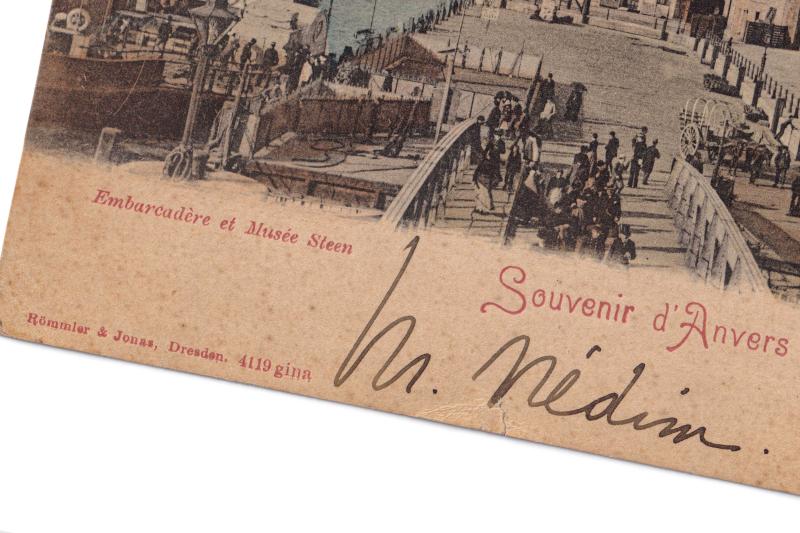 Embarcadère et Musée Steen
Souvenir d'Anvers
Römmler & Jonas, Dresden. 4119 gina
M. Nédim.